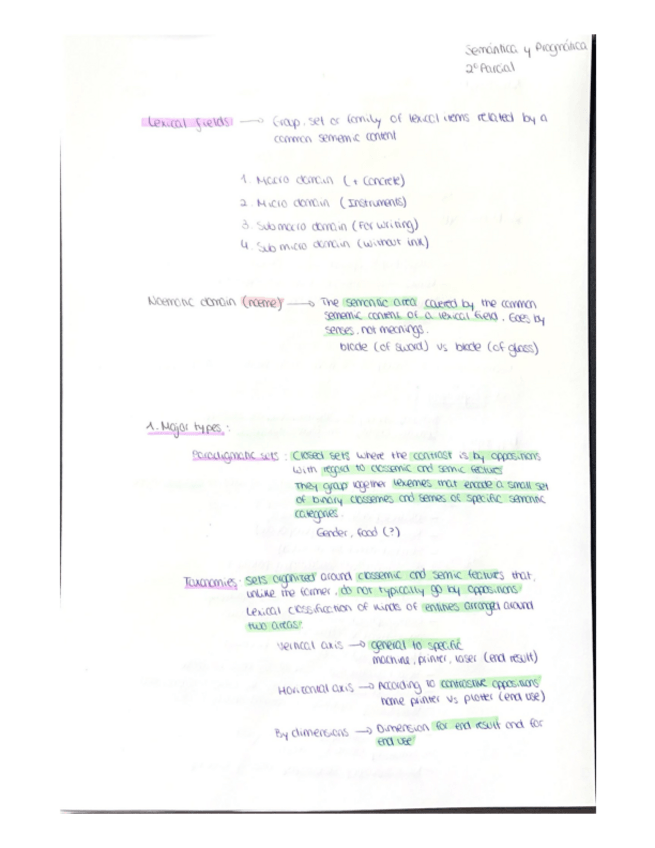 Semántica y Pragmática
2º Parcial
Lexical fields → Group, set or family of lexical items related by a
common sememic content
1. Macro domain (+ Concrete)
2. Micro domain (Instruments)
3. Submacro domain (For writing)
4. Sub micro domain (without ink)
Noematic domain (noeme) → The semantic area covered by the common
sememic content of a lexical field. Goes by
senses, not meanings.
blade (of sword) vs blade (of glass)
1. Major types:
Paradigmatic sets: Closed sets where the contrast is by oppositions
with regard to classemic and semic features
They group together lexemes that encode a small set
of binary classemes and semes of specific semantic
categories.
Gender, food (?)
Taxonomies: Sets organized around classemic and semic features that,
unlike the former, do not typically go by oppositions
Lexical classification of kinds of entities arranged around
two areas:
Vertical axis → general to specific
machine, printer, laser (end result)
Horizontal axis → According to contrastive oppositions
home printer vs plotter (end use)
By dimensions → Dimension for end result and for
end use